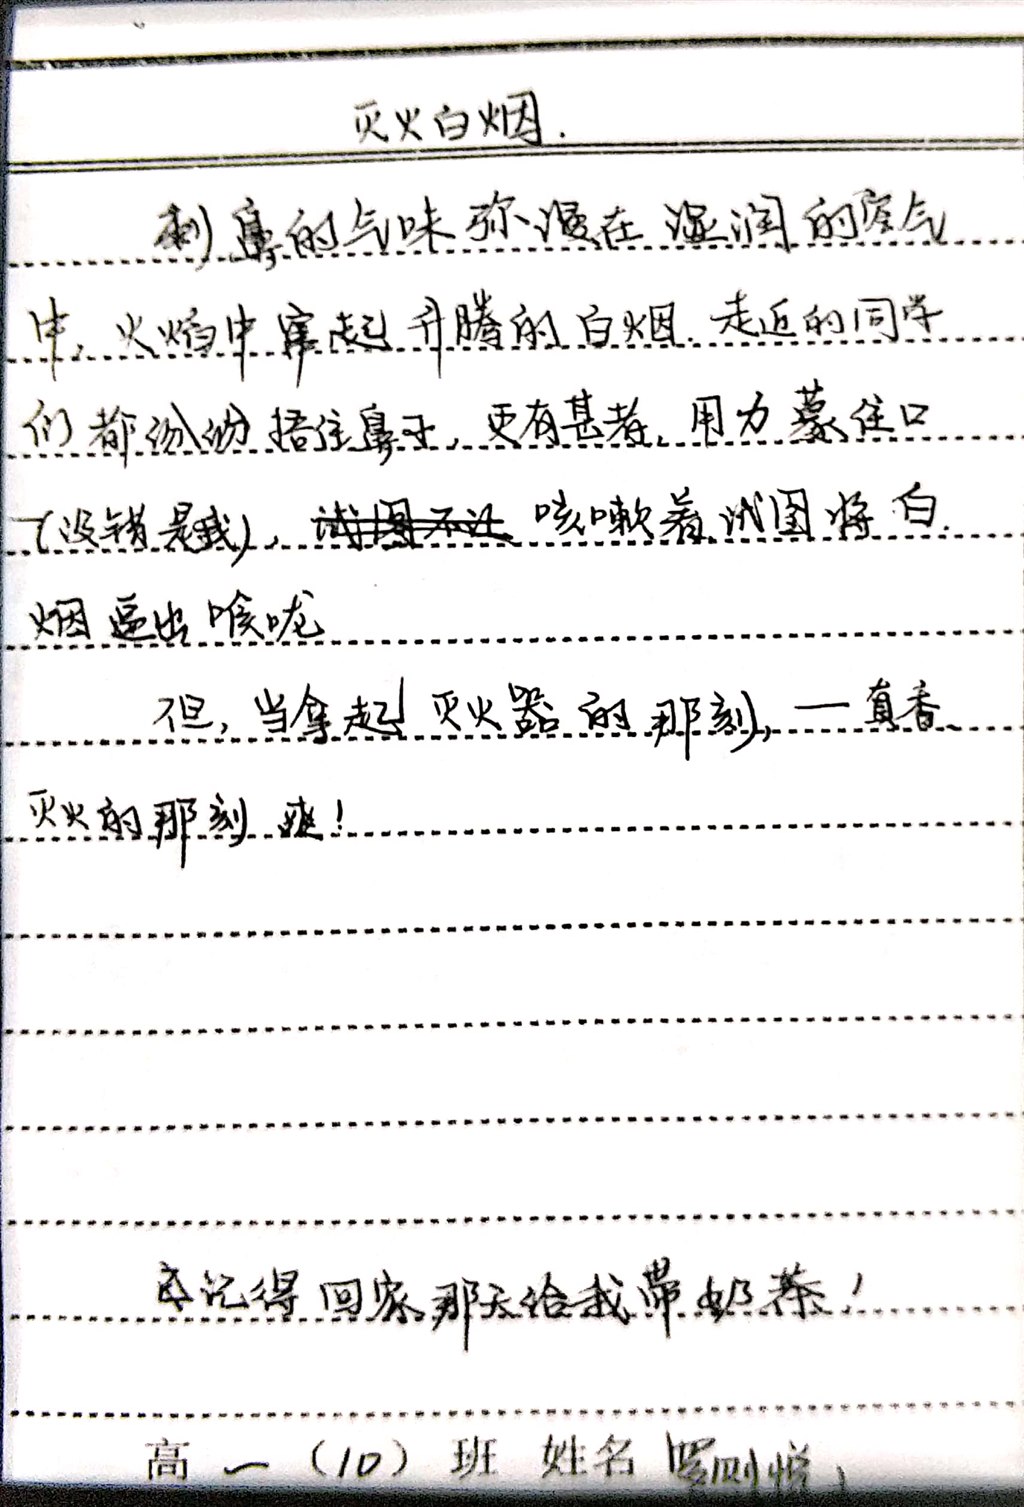 灭火白烟.
刺鼻的气味弥漫在湿润的空气
中,火焰中窜起升腾的白烟.走近的同学
们都纷纷捂住鼻子,更有甚者,用力蒙住口
(没错是我),试图不让咳嗽着试图将白
烟逼出喉咙
但,当拿起灭火器的那刻,一真香
灭火的那刻爽!
记得回家那天给我带奶茶!
高一(10)班 姓名 罗则悦